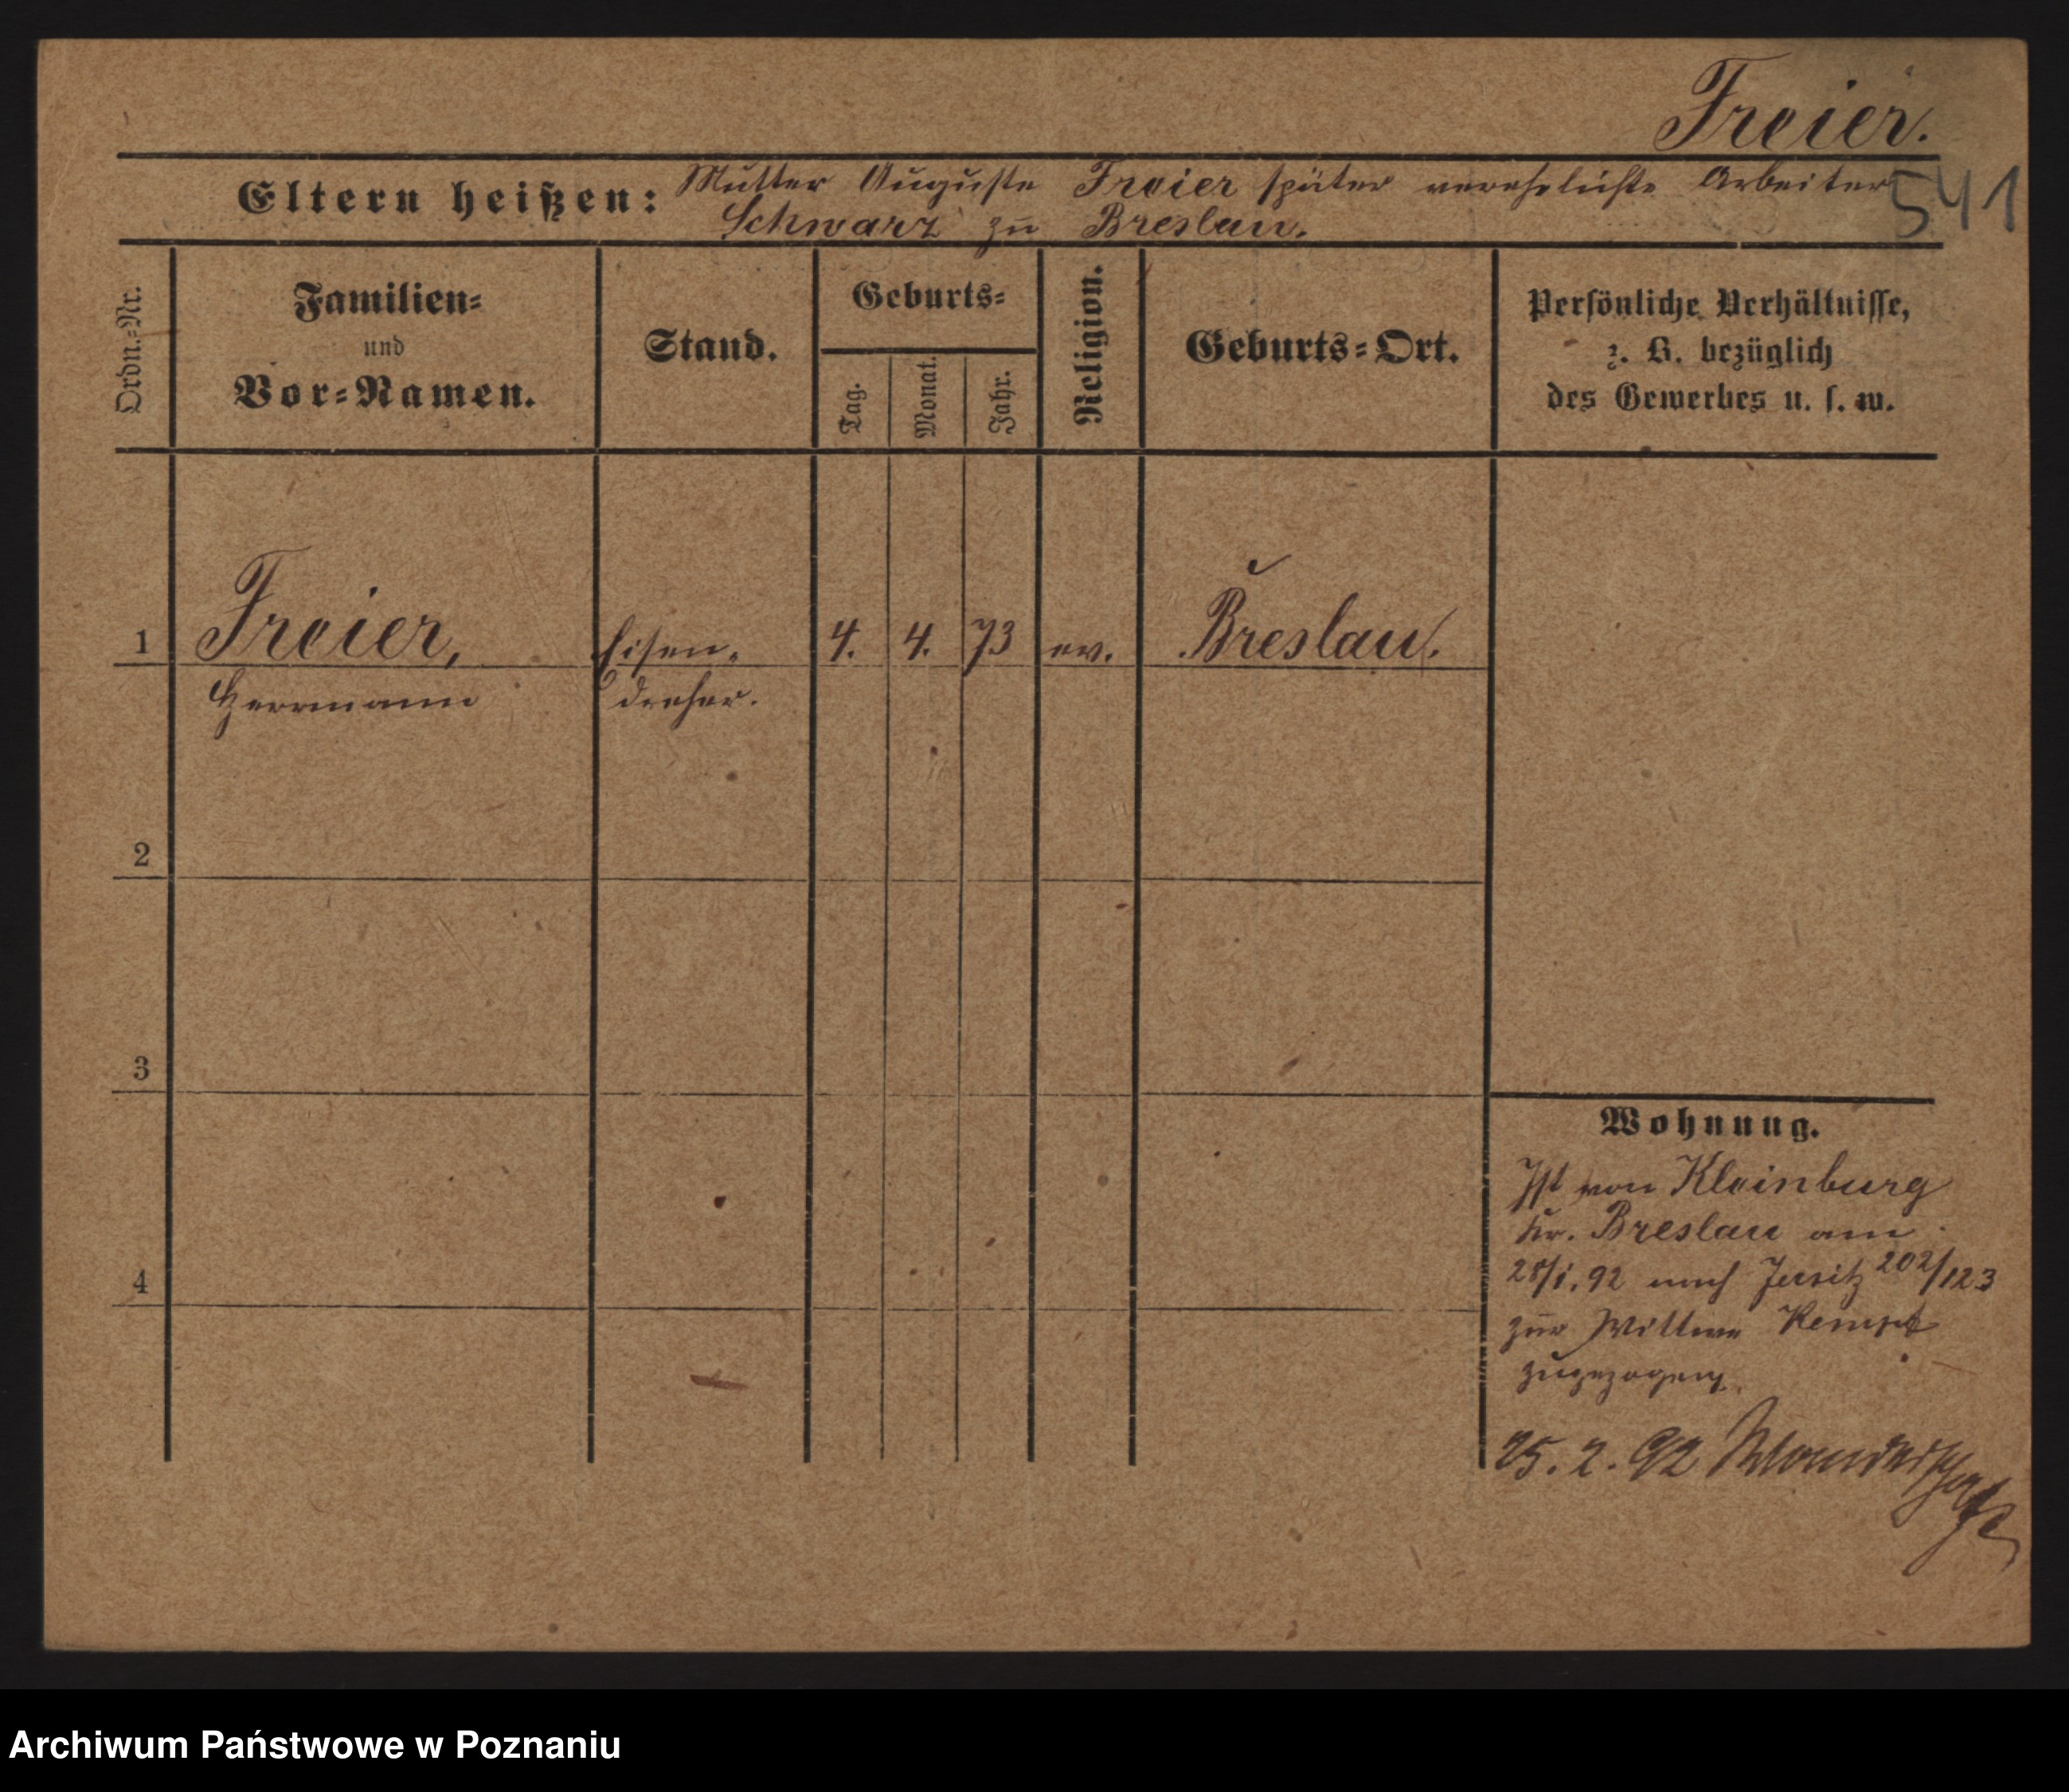 Freier.
Eltern heißen: Mutter Auguste Freier später verehelichte Arbeiter
Schwarz zu Breslau.
541
Ordn.=Nr.
Familien=
und
Vor=Namen.
Stand.
Geburts=
Tag.
Monat.
Jahr.
Religion.
Geburts=Ort.
Persönliche Verhältnisse,
z. B. bezüglich
des Gewerbes u. s. w.
1 Freier, Eisen- 4. 4. 73 ev. Breslau.
Herrmann dreher.
2
3
4
Wohnung.
Ist von Kleinburg
Kr. Breslau am
28/1. 92 nach Jersitz 202/123
zur Wittwe
zugezogen
25. 2. 92
Archiwum Państwowe w Poznaniu